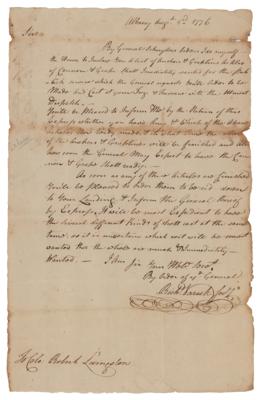 Albany Augt. 2d. 1776
Sir
By General Schuylers Order I do myself
the Honor to Inclose You a List of Anchors & Grapplins & also of
Cannon & Grape Shott Immediately wanted for the Pub-
lick service which the General requests you'll Order to be
Made and Cast at your & Furnace with the Utmost
Dispatch.
You'll be pleased to Inform by the Return of this
Express whether you have any & Which of the Above
Articles now ready made & at what time the
of the Anchors & Grapplins will be finished and also
how soon the General May Expect to have the Cann-
on & Grape Shott ready
As soon as any of these Articles are finished
You'll be pleased to Order them to be down
to Your Landing & Inform the General thereof
by Express, it will be most Expedient to have
the several different kinds of shott cast at the same
time, as it is uncertain which sort will be most
wanted tho' the whole are much & Immediately
Wanted. I am Sir Your
By Order of General
Richd Varick
To Colo. Robert Livingston